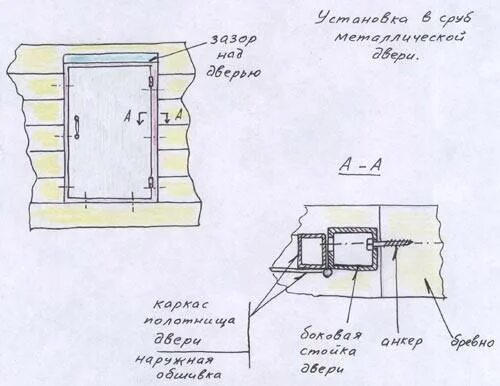 Установка в сруб
металлической
двери.
зазор
над
дверью
А А
А – А
каркас
полотнища
двери
наружная
обшивка
боковая
стойка
двери
анкер
бревно